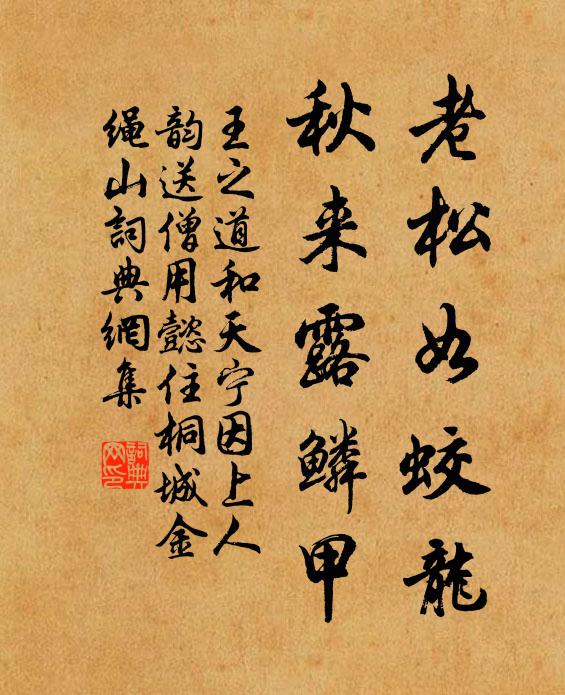 老松如蛟龍
秋来露鳞甲
王之道和天宁因上人
韵送僧用懿住桐城金
绳山詞典網集
詞典
网印